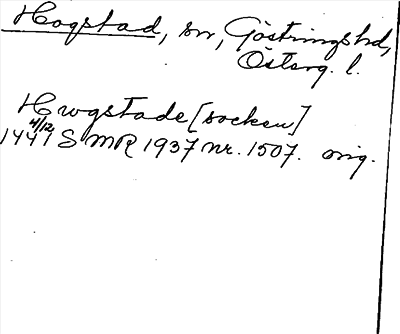 Hogstad, sn, Göstringshd,
Österg. l.
Hwgstade [socken]
4/12
1447 SMR 1937 nr. 1507. orig.